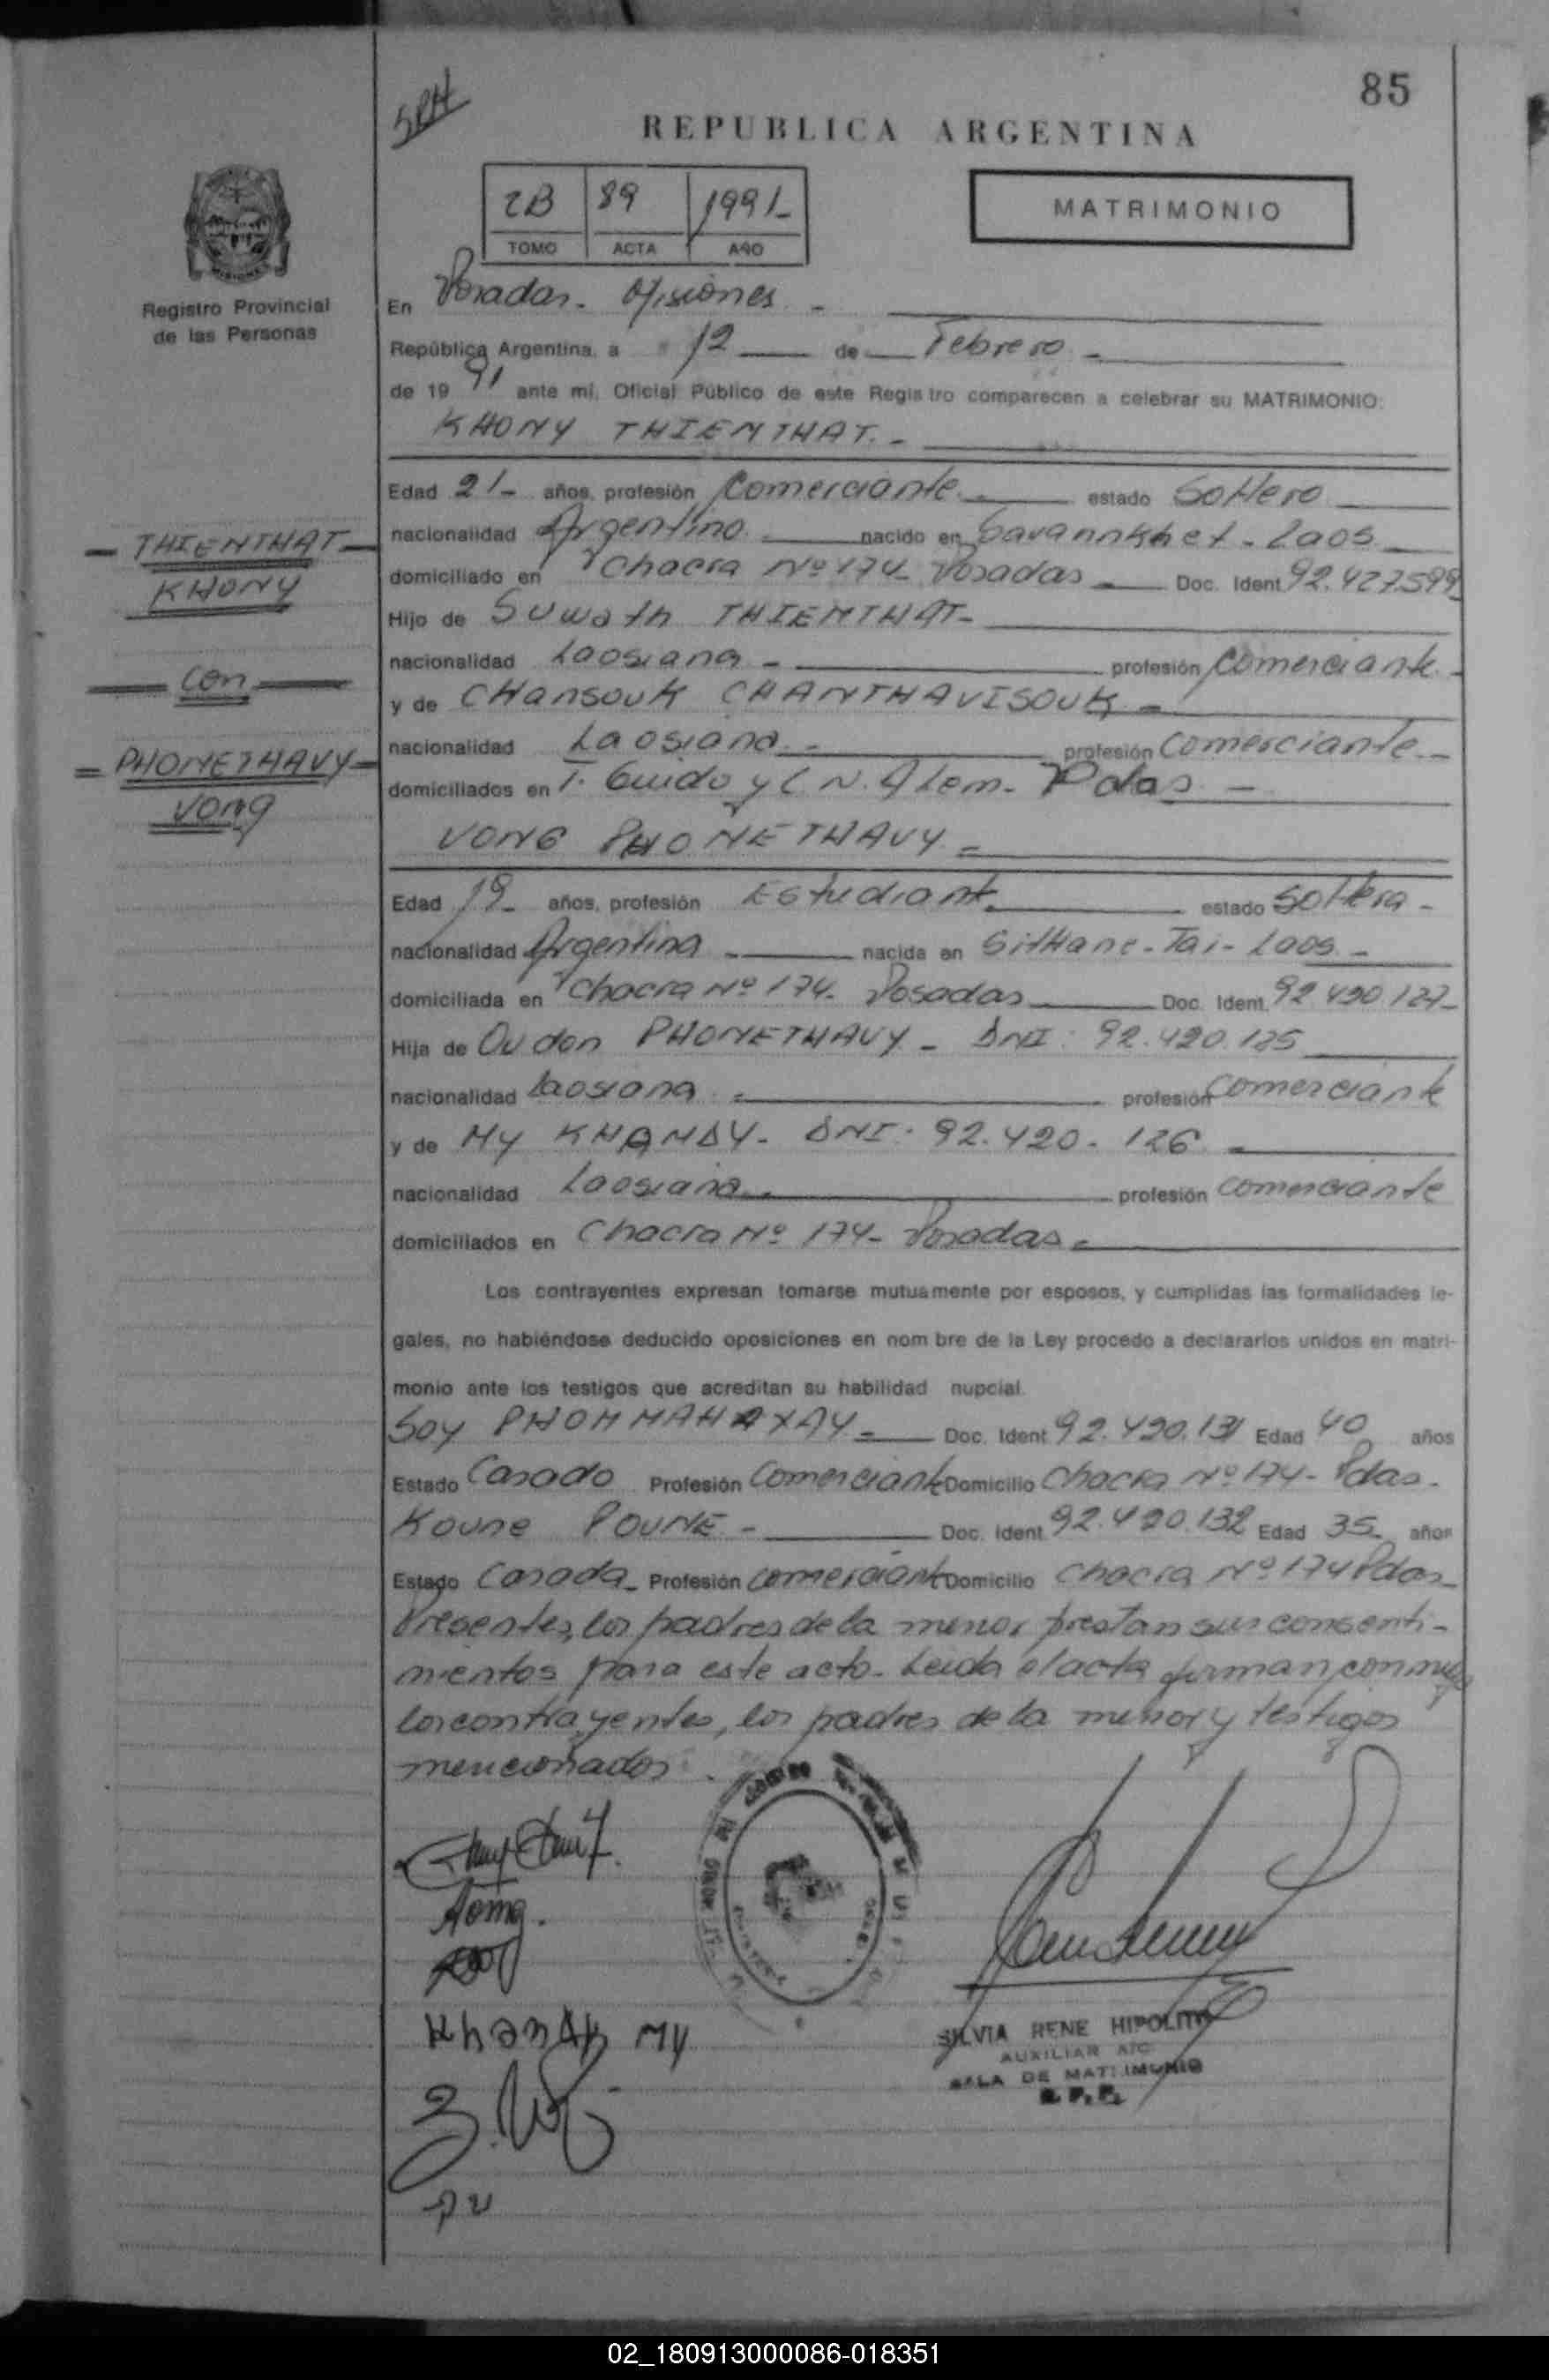 85
SRH
REPUBLICA ARGENTINA
2B 89 1991-
TOMO ACTA AÑO
MATRIMONIO
MISIONES
Registro Provincial
de las Personas
En Posadas - Misiones -
República Argentina, a 12 de Febrero -
de 1991 ante mí, Oficial Público de este Registro comparecen a celebrar su MATRIMONIO:
KHONY THIENTHAT. -
Edad 21- años, profesión Comerciante. - estado Soltero
nacionalidad Argentino. - nacido en Savannkhet - Laos
domiciliado en Chacra Nº 174 - Posadas - Doc. Ident. 92.427.599
Hijo de Suwath THIENTHAT-
nacionalidad Laosiana - profesión Comerciante. -
y de CHansouk CHANTHAVISOUK -
nacionalidad Laosiana. - profesión Comerciante -
domiciliados en T. Guido y L N. Alem - Pdas -
— THIENTHAT —
KHONY
— con —
= PHOMETHAVY =
VONG
VONG PHOMETHAVY =
Edad 19- años, profesión Estudiante estado Soltera -
nacionalidad Argentina - nacida en Sithane - Tai - Laos. -
domiciliada en Chacra Nº 174 - Posadas Doc. Ident. 92 420 127-
Hija de Oudon PHOMETHAVY - DNI: 92.420.125
nacionalidad Laosiana - profesión Comerciante
y de My KHAMDY - DNI: 92.420.126 -
nacionalidad Laosiana - profesión Comerciante
domiciliados en Chacra Nº 174 - Posadas -
Los contrayentes expresan tomarse mutuamente por esposos, y cumplidas las formalidades le-
gales, no habiéndose deducido oposiciones en nombre de la Ley procedo a declararlos unidos en matri-
monio ante los testigos que acreditan su habilidad nupcial
Soy PHOMMAHAXAY - Doc. Ident 92.420.131 Edad 40 años
Estado Casado Profesión Comerciante Domicilio Chacra Nº 174 - Pdas -
Koune POUNE - Doc. Ident. 92.420.132 Edad 35 años
Estado Casada - Profesión comerciante Domicilio Chacra Nº 174 Pdas -
Presentes, los padres de la menor prestan sus consenti-
mientos para este acto. Leida el acta firman conmigo
los contrayentes, los padres de la menor y testigos
mencionados.
SILVIA RENE HIPOLITO
AUXILIAR A/C
SALA DE MATRIMONIO
R. P. P.
02_180913000086-018351